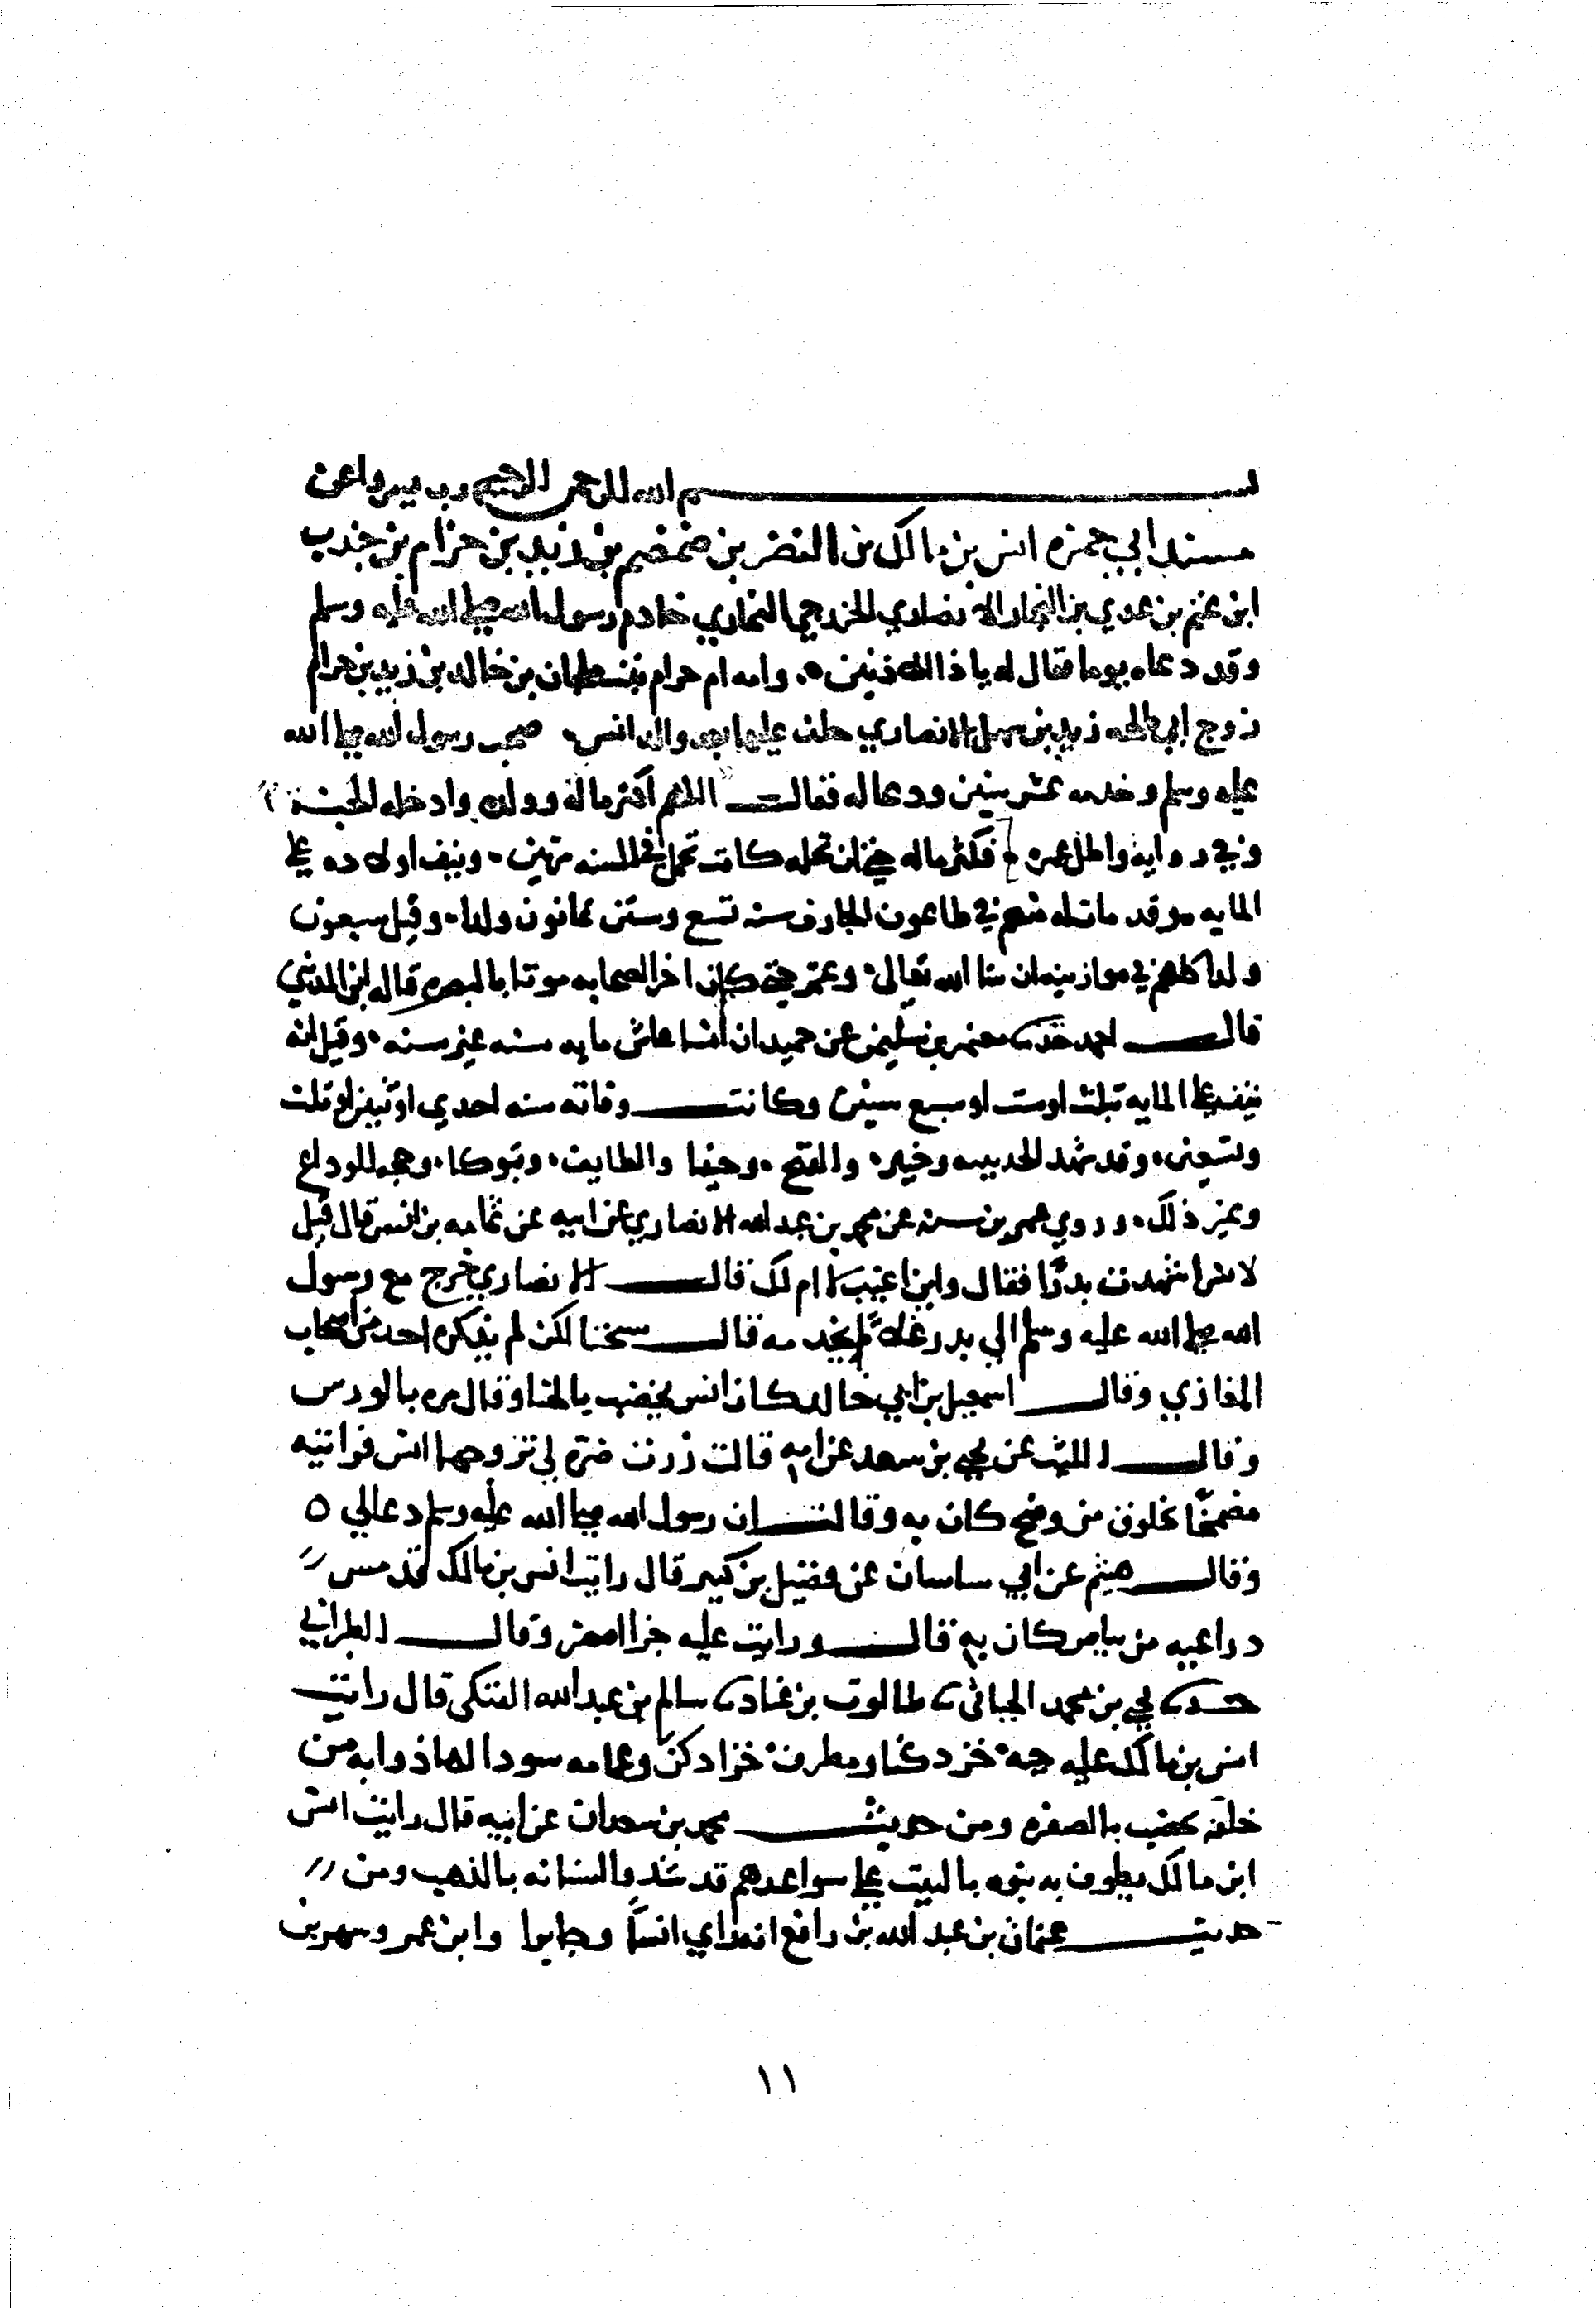 بسم الله الرحمن الرحيم رب يسر واعن
مسند ابي حمزه انس بن مالك بن النضر بن ضمضم بن زيد بن حرام بن جندب
ابن غنم بن عدي بن النجار الانصاري الخزرجي النجاري خادم رسول الله صلى الله عليه وسلم
وقد دعاه يوما فقال له يا ذا الاذنين وامه ام حرام بنت ملحان بن خالد بن زيد بن حرام
زوج ابي طلحه زيد بن سهل الانصاري خلف عليها بعد والد انس صحب رسول الله صلى الله
عليه وسلم وخدمه عشر سنين ودعا له فقال اللهم اكثر ماله وولده وادخله الجنة
وفي روايه واطل عمره فكثر ماله حتى ان نخله كانت تحمل في السنه مرتين ونيف اولاده على
المايه وقد مات له منهم في طاعون الجارف سنه تسع وستين ثمانون ولدا وقيل سبعون
ولدا كلهم في موازينه ان شا الله تعالى وعمر حتى كان اخر الصحابه موتا بالبصره قاله ابن المديني
قال احمد حدثنا معتمر بن سليمن عن حميد ان انسا عاش مايه سنه غير سنه وقيل انه
نيف على المايه بثلث او ست او سبع سنين وكانت وفاته سنه احدي او ثنتين او ثلث
وتسعين وقد شهد الحديبيه وخيبر والفتح وحنينا والطايف وتبوكا وحجه الوداع
وغير ذلك وروي عمر بن شبه عن محمد بن عبد الله الانصاري عن ابيه عن ثمامه بن انس قال قيل
لانس اشهدت بدرا فقال واين اغيب لا ام لك قال الانصاري خرج مع رسول
الله صلى الله عليه وسلم الي بدر غلاما يخدمه قال شيخنا لكن لم يذكره احد من اصحاب
المغازي وقال اسمعيل بن ابي خالد كان انس يخضب بالحنا وقال مره بالورس
وقال الليث عن يحيي بن سعيد عن امه قالت زرت ضره لي تزوجها انس فراتيه
مضمخا بخلوق من وضح كان به وقالت ان رسول الله صلى الله عليه وسلم دعا لي ٥
وقال هشيم عن ابي ساسان عن فضيل بن كثير قال رايت انس بن مالك قد مس
ذراعيه من بياض كان به قال ورايت عليه خزا اصفر وقال الطبراني
حدثنا يحيي بن محمد الحنائي ثنا طالوت بن عباد ثنا سالم بن عبد الله العتكي قال رايت
انس بن مالك عليه جبه خز دكنا ومطرف خز ادكن وعمامه سودا لها ذوابه من
خلفه يخضب بالصفره ومن حديث محمد بن سعدان عن ابيه قال رايت انس
ابن مالك يطوف به بنوه بالبيت على سواعدهم قد شدوا اسنانه بالذهب ومن
حديث عثمان بن عبد الله بن رافع انه راي انسا وجابرا وابن عمر وسهل بن
١١